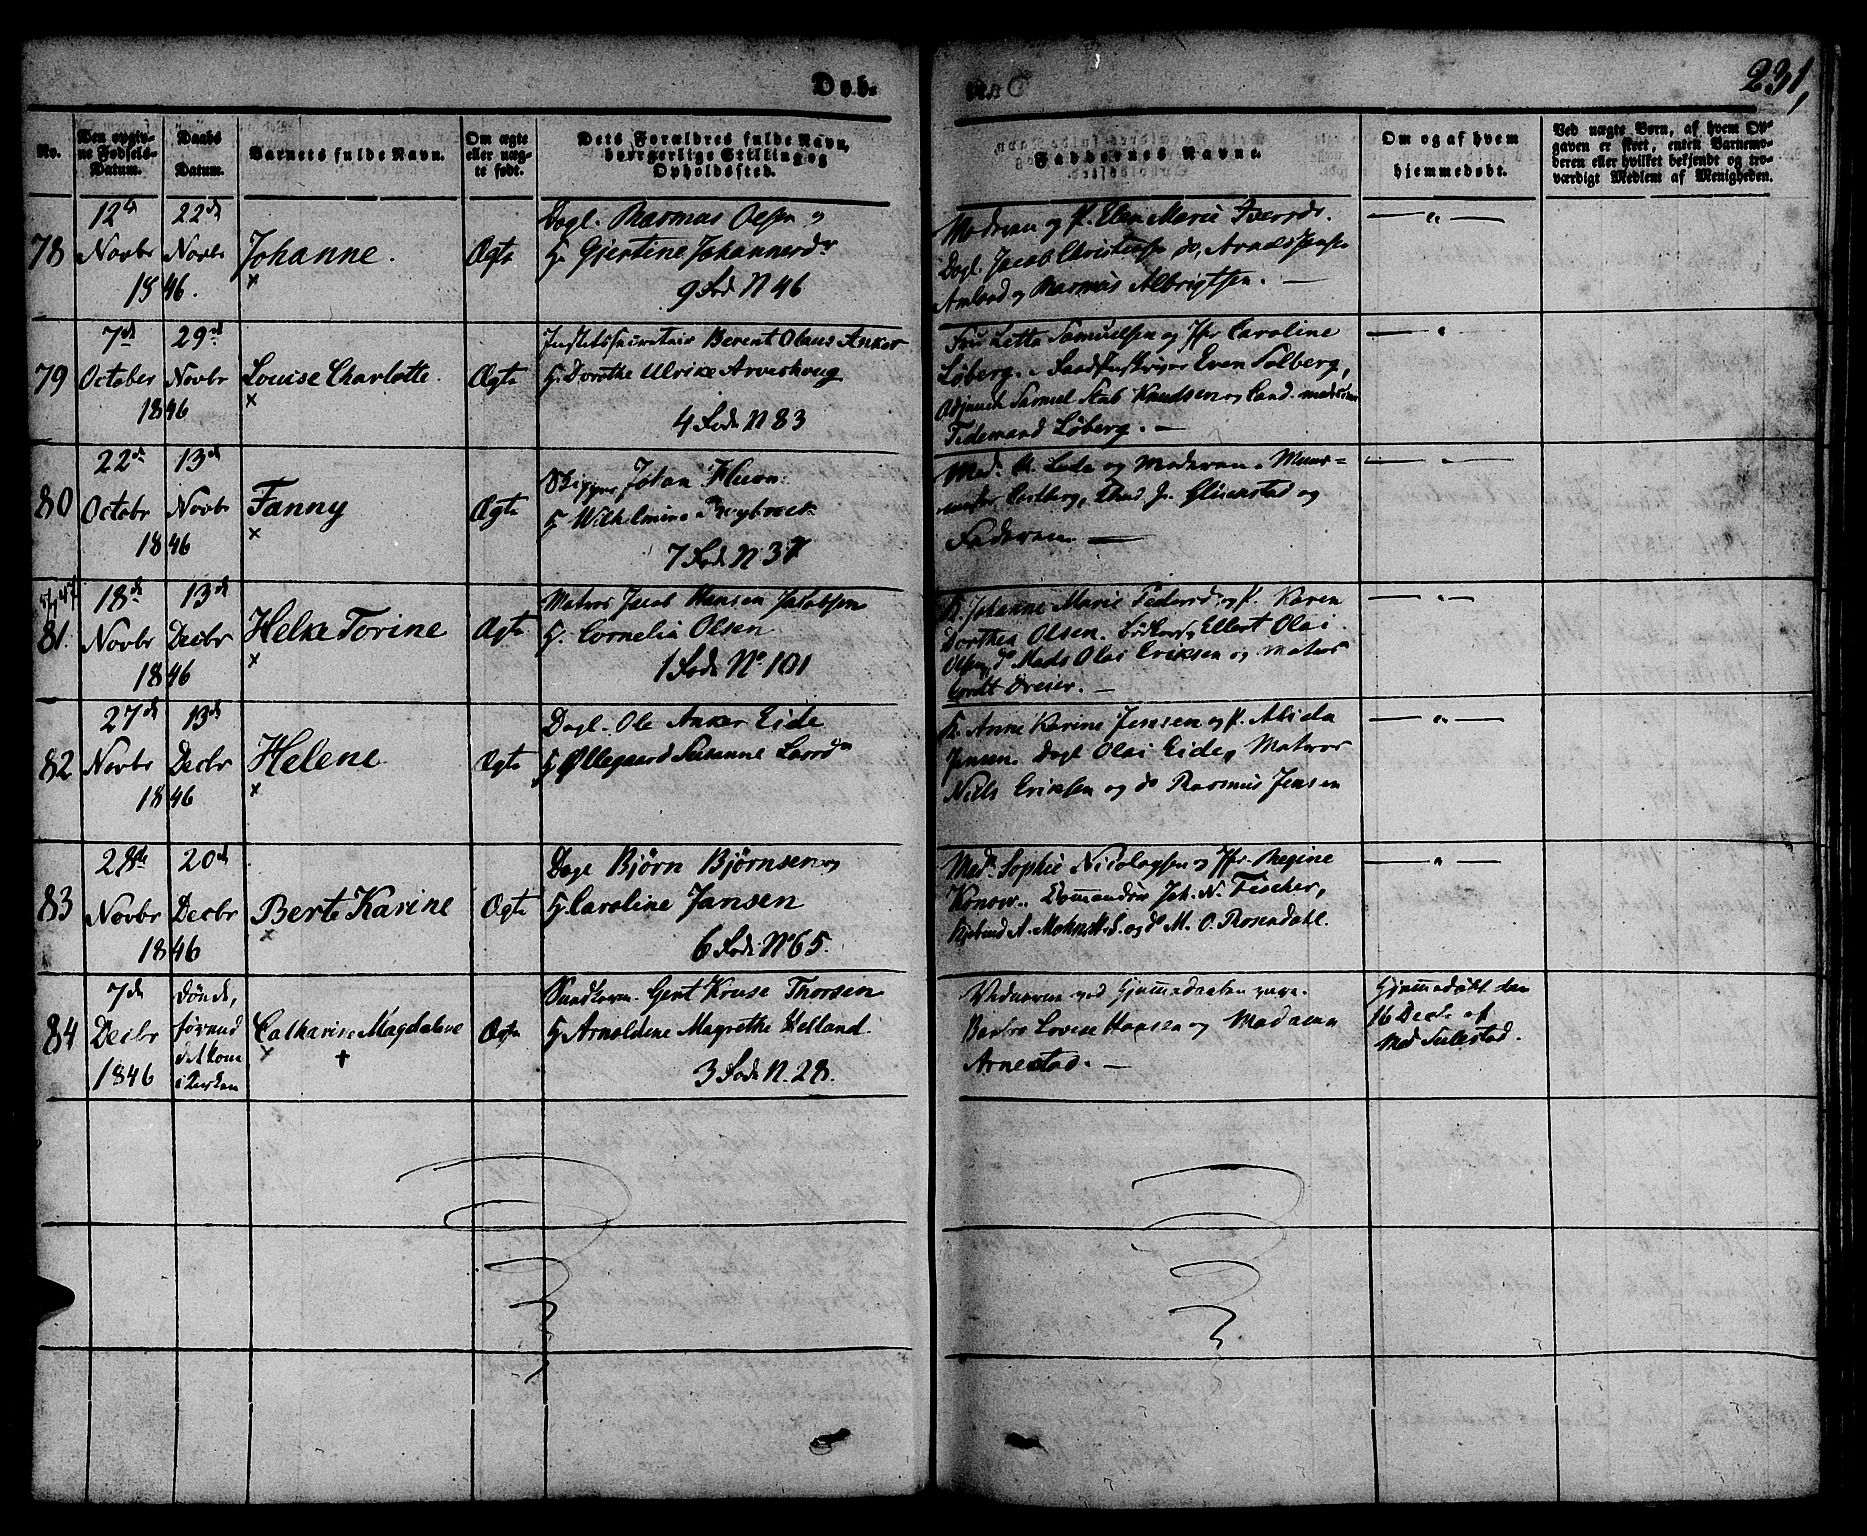 Døb.
231,
No.
Den opgiv-
ne Fødsels-
Datum.
Daabs
Datum.
Barnets fulde Navn.
Om ægte
eller uæg-
te født.
Dets Forældres fulde Navn,
borgerlige Stilling og
Opholdssted.
Faddernes Navne.
Om og af hvem
hjemmedøbt.
Ved uægte Børn, af hvem Op-
gaven er skeet, enten Barnemo-
deren eller hvilket bekjendt og tro-
værdigt Medlem af Menigheden.
78
12te
Novbr
1846.
22de
Novbr
Johanne.
×
Ægte
Dagl. Rasmus Olsen og
H. Gjertine Johannesdr
9 Fød N 46
Moderen og P. Elen Marie Iversdr.
Dagl. Jacob Christensen do, Arne
og Rasmus Albrigtsen. —
— " —
79
7de
October
1846
29de
Novbr
Louise Charlotte
×
Ægte
Berent Olaus Anker
H. Dorothe Ulrike Arveskoug
4 Fød N 83
Fru Samuelsen og Jfr Caroline
Løberg. Even Solberg,
Adjunct Samuel Knudsen og Cand.
Tidemand Løberg. —
— " —
80
22de
Octobr
1846
13de
Novbr
Fanny
×
Ægte
Skipper Johan
H. Wilhelmine
7 Fød N 37
Mad. og Moderen.
og
Faderen —
— " —
81.
18de
Novbr
1846
13de
Decbr
Helke Torine
×
Ægte
Matros Jacob Hansen Jacobsen
H. Cornelia Olsen
1 Fød No 101
H. Johanne Marie Pedersd. og P. Karen
Dorthea Olsen. Ellert Olai
Olsen, do Mads Olai Eriksen og Matros
Cordt Dreier. —
— " —
82
27de
Novbr
1846
13de
Decbr
Helene
×
Ægte
Dagl. Ole Anker Eide
H. Øllegaard Susanne
H. Anne Karine Jensen og P. Alida
Jensen. Dagl Olai Eide, Matros
Niels Eriksen og do Rasmus Jensen
— " —
83
28de
Novbr
1846
20de
Decbr
Berte Karine
×
Ægte
Dagl Bjørn Bjørnsen og
H. Caroline Jansen
6 Fød No 65.
Mad. Sophie Nicolaysen og Jfr. Regine
Konow. Commandør Joh. N. Fischer,
Kjøbmd A. Mohn og do M. O. Rosendahl.
— " —
84
7de
Decbr
1846
Døde,
førend
det kom
i Kirken
Catharine Magdalene
× +
Ægte
Gert Kruse Thorsen
H. Arnoldine Magrethe Helland.
3 Fød N. 28.
Vidnerne ved Hjemmedaaben
Louise Hansen og Madame
Arnestad. —
Hjemmedøbt den
16 Decbr af
Mad Sulestad.